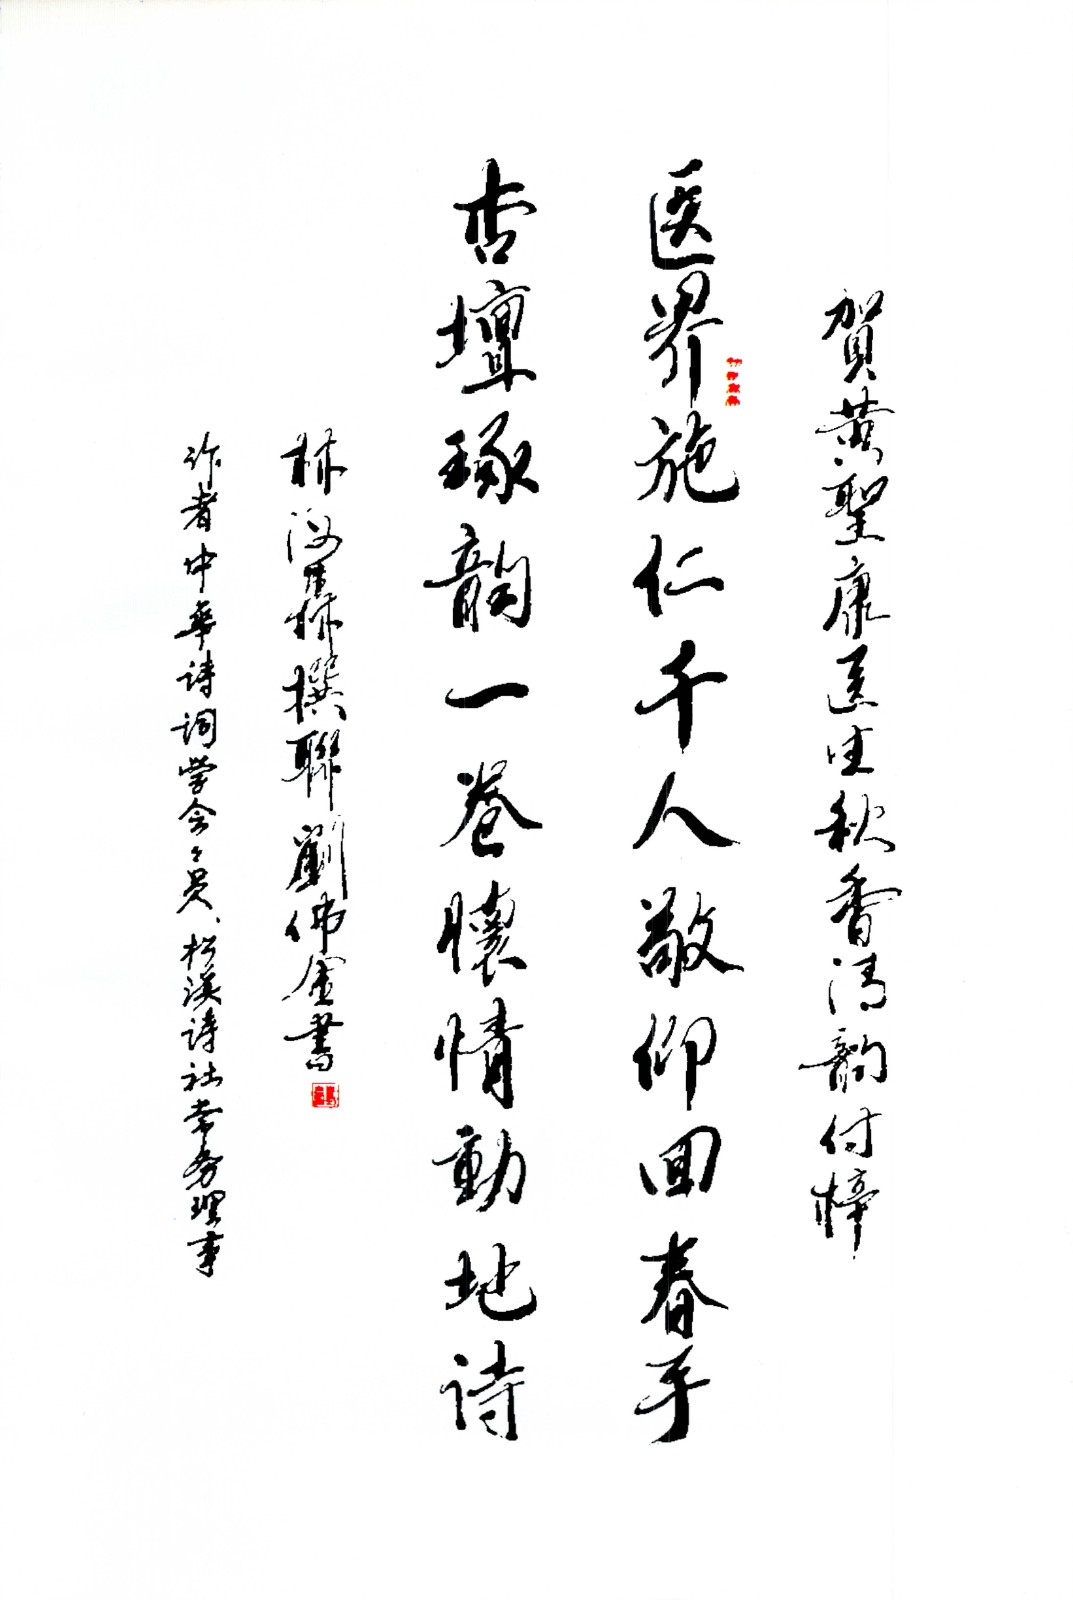 賀黄聖康医生秋香清韵付梓
医界施仁千人敬仰回春手
杏壇琢韵一卷懷情動地詩
林汝霖撰聯劉佛金書
作者中华诗词学会会员、松溪诗社常务理事